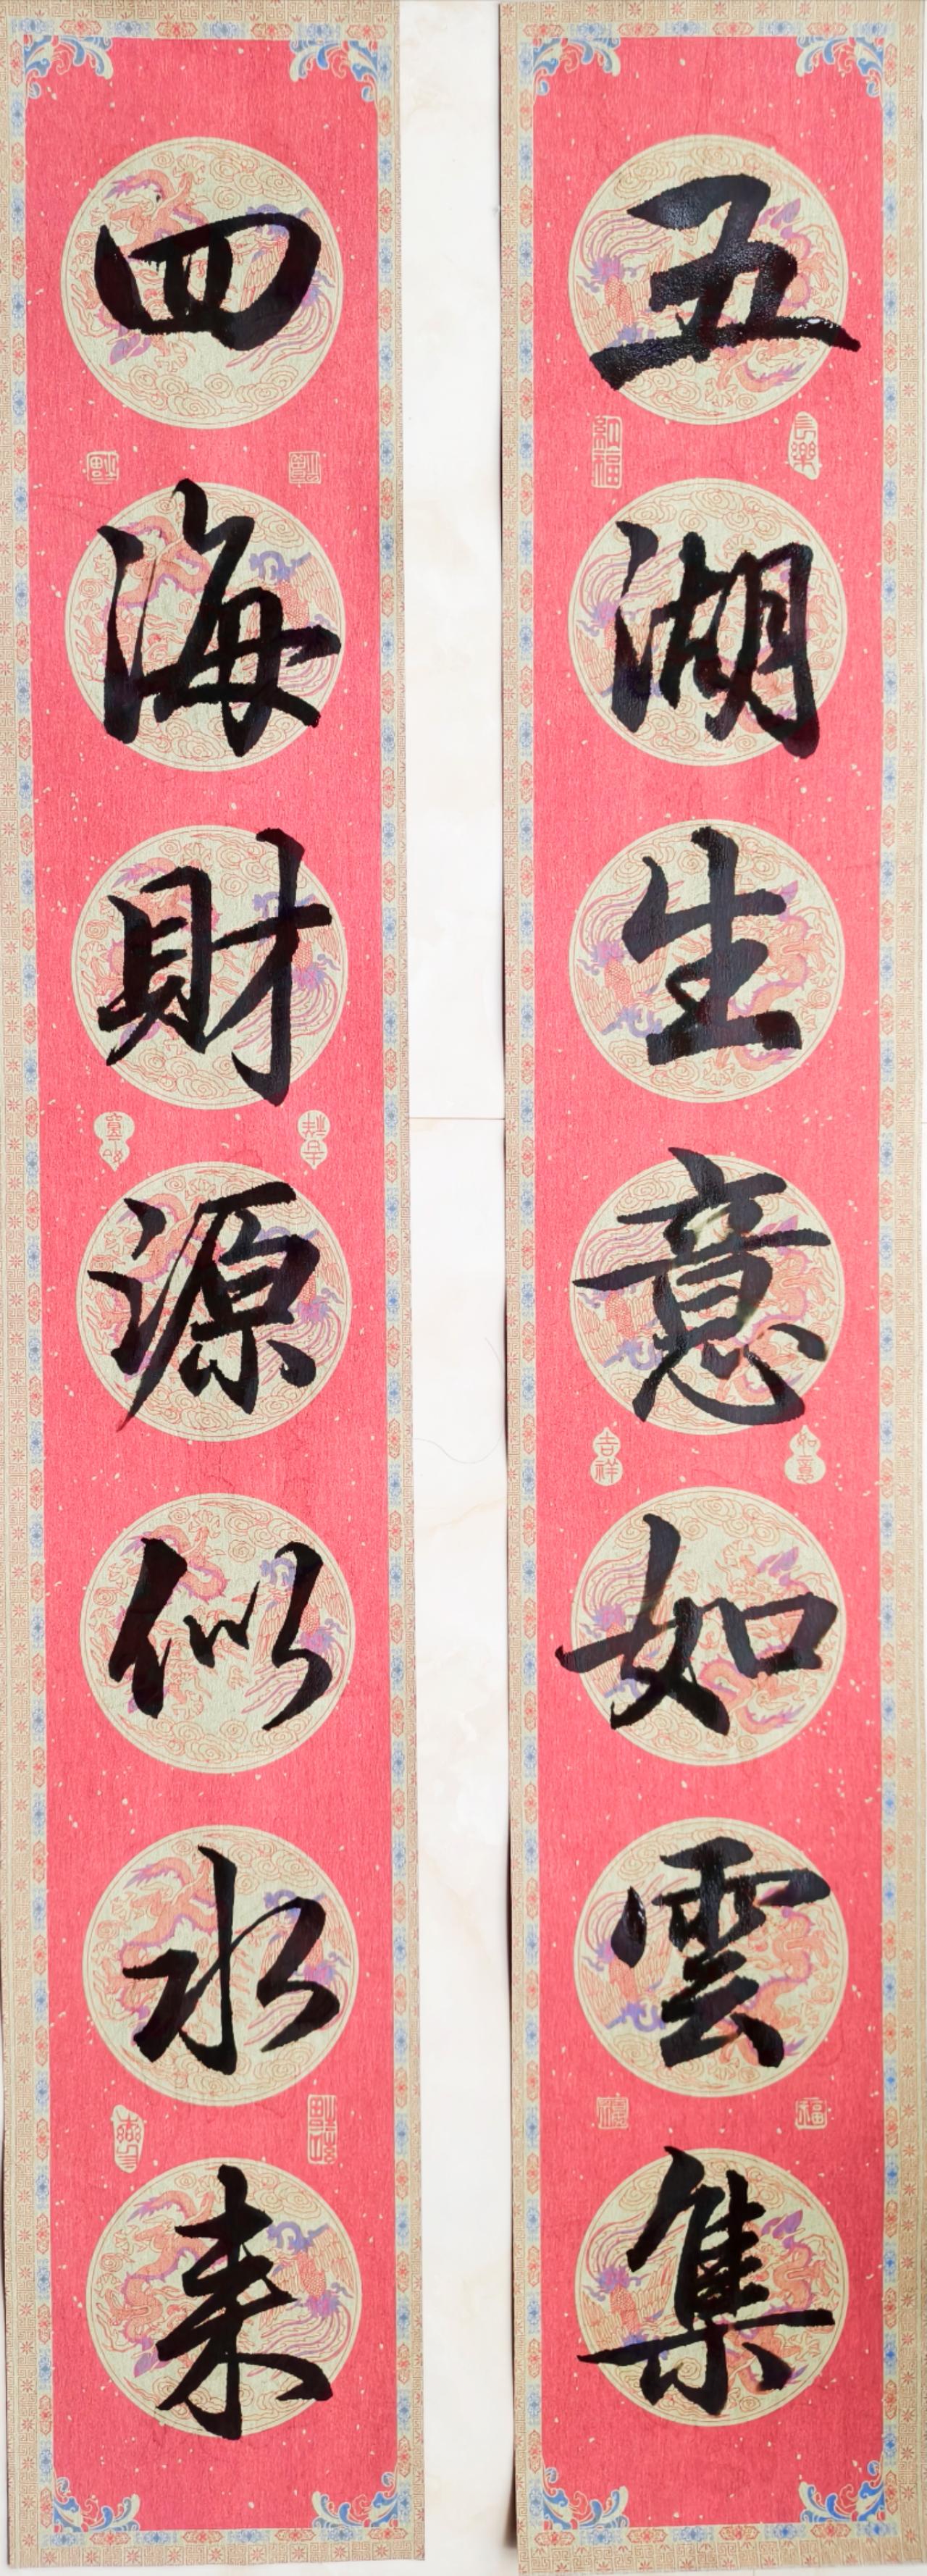 五湖生意如雲集
四海財源似水来